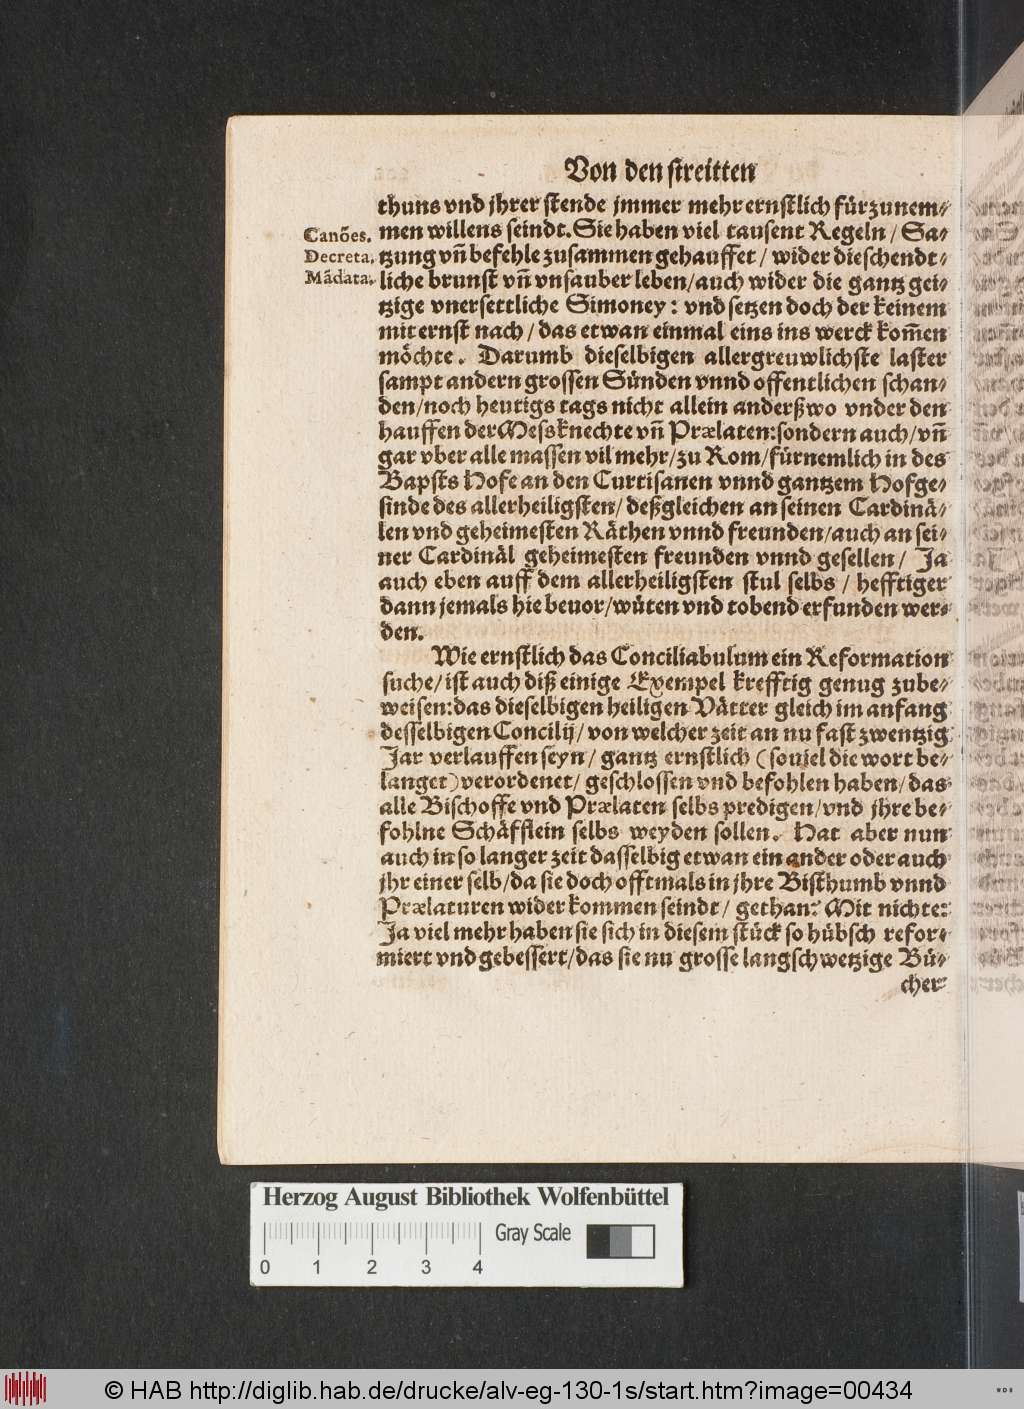 Von den streitten
thuns vnd jhrer stende jmmer mehr ernstlich fürzunem-
Canões. men willens seindt. Sie haben viel tausent Regeln / Sa-
Decreta. tzung vñ befehle zusammen gehauffet / wider die schendt-
Mãdata. liche brunst vñ vnsauber leben / auch wider die gantz gei-
tzige vnersettliche Simoney: vnd setzen doch der keinem
mit ernst nach / das etwan einmal eins ins werck kom̃en
möchte. Darumb dieselbigen allergreuwlichste laster
sampt andern grossen Sünden vnnd offentlichen schan-
den / noch heutigs tags nicht allein anderßwo vnder den
hauffen der Messknechte vñ Prælaten: sondern auch / vñ
gar vber alle massen vil mehr / zu Rom / fürnemlich in des
Bapsts Hofe an den Curtisanen vnnd gantzem Hofge-
sinde des allerheiligsten / deßgleichen an seinen Cardinä-
len vnd geheimesten Räthen vnnd freunden / auch an sei-
ner Cardinäl geheimesten freunden vnnd gesellen / Ja
auch eben auff dem allerheiligsten stul selbs / hefftiger
dann jemals hie beuor / wüten vnd tobend erfunden wer-
den.
Wie ernstlich das Conciliabulum ein Reformation
suche / ist auch diß einige Exempel krefftig genug zube-
weisen: das dieselbigen heiligen Vätter gleich im anfang
desselbigen Concilij / von welcher zeit an nu fast zwentzig
Jar verlauffen seyn / gantz ernstlich (souiel die wort be-
langet) verordenet / geschlossen vnd befohlen haben / das
alle Bischoffe vnd Prælaten selbs predigen / vnd jhre be-
fohlne Schäfflein selbs weyden sollen. Hat aber nun
auch in so langer zeit dasselbig etwan ein ander oder auch
jhr einer selb / da sie doch offtmals in jhre Bisthumb vnnd
Prælaturen wider kommen seindt / gethan? Mit nichte:
Ja viel mehr haben sie sich in diesem stück so hübsch refor-
miert vnd gebessert / das sie nu grosse langschwetzige Bü-
cher
Herzog August Bibliothek Wolfenbüttel
Gray Scale
0 1 2 3 4
© HAB http://diglib.hab.de/drucke/alv-eg-130-1s/start.htm?image=00434